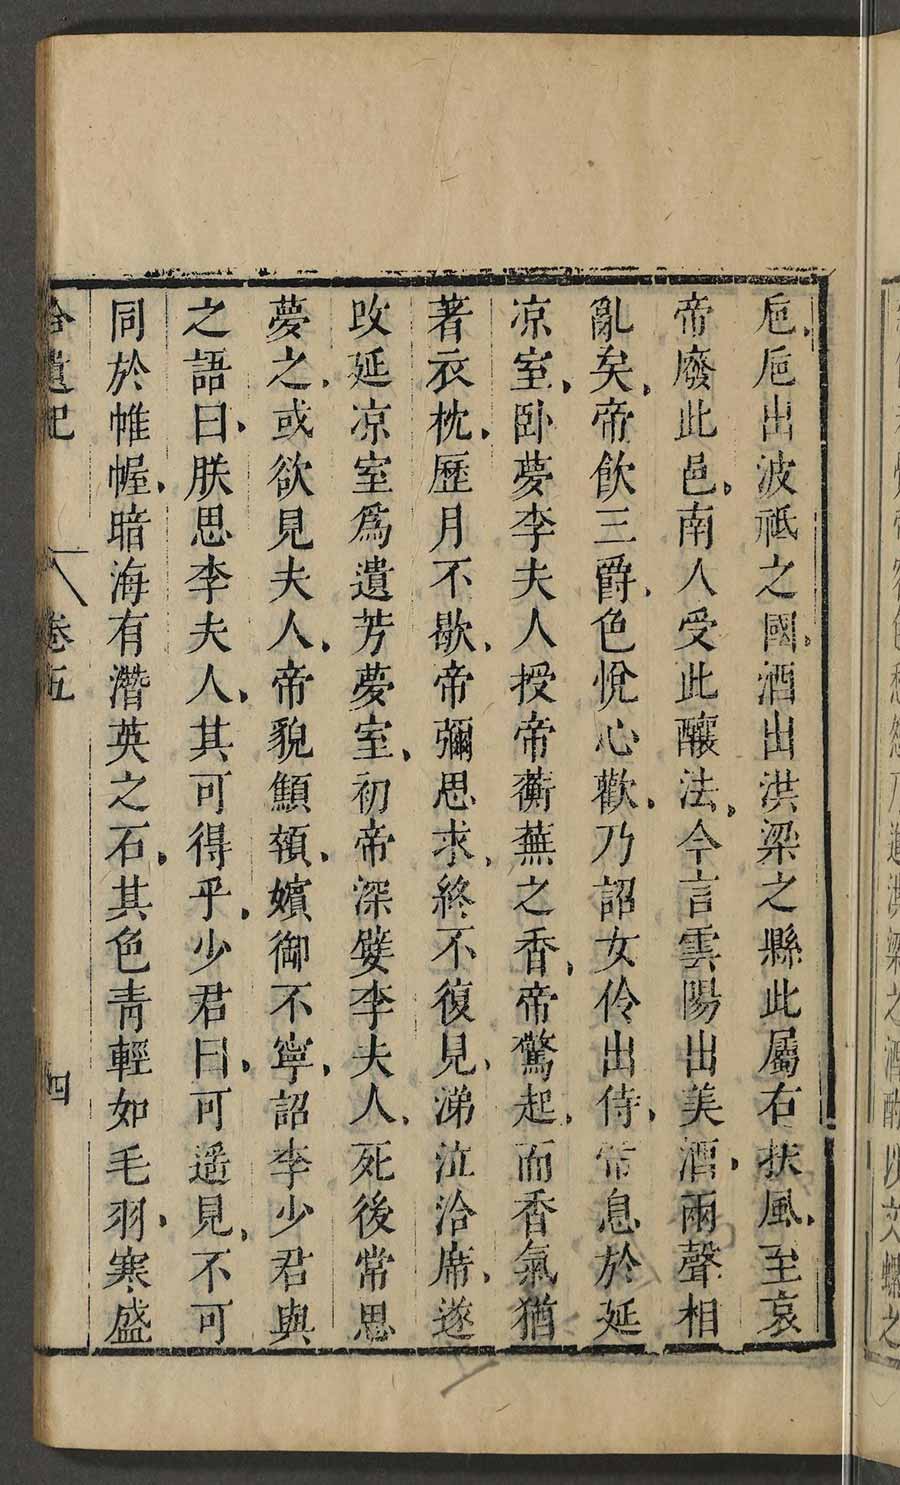 巵巵出波祗之國酒出洪梁之縣此屬右扶風至哀
帝廢此邑南人受此釀法今言雲陽出美酒兩聲相
亂矣帝飲三爵色悅心歡乃詔女伶出侍帝息於延
凉室卧夢李夫人授帝蘅蕪之香帝驚起而香氣猶
著衣枕歷月不歇帝彌思求終不復見涕泣洽席遂
改延凉室爲遺芳夢室初帝深嬖李夫人死後常思
夢之或欲見夫人帝貌顦顇嬪御不寧詔李少君與
之語曰朕思李夫人其可得乎少君曰可遥見不可
同於帷幄暗海有潛英之石其色青輕如毛羽寒盛
拾遺記 卷五 四